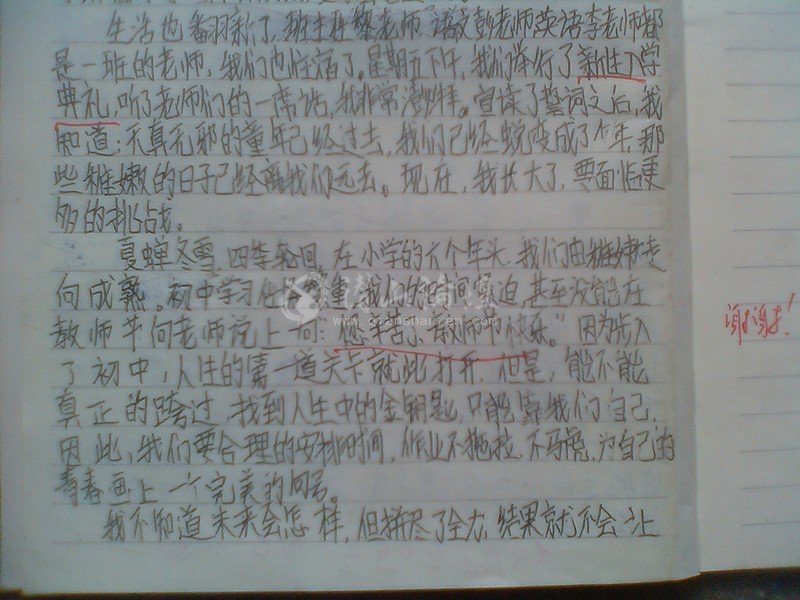 生活也翻新了,班主任黎老师 语文彭老师英语李老师都
是一班的老师,我们也住宿了。星期五下午,我们举行了新生入学
典礼,听了老师们的一席话,我非常激动。宣读了誓词之后,我
知道:天真无邪的童年已经过去,我们已经蜕变成了少年,那
些稚嫩的日子已经离我们远去。现在,我长大了,要面临更
多的挑战。
夏蝉冬雪,四季轮回,在小学的六个年头,我们由稚嫩走
向成熟。初中学习任务繁重,我们的时间紧迫,甚至没能在
教师节向老师说上一句:“您辛苦了,教师节快乐。”因为步入
了初中,人生的第一道关卡就此打开,但是,能不能
真正的跨过,找到人生中的金钥匙,只能靠我们自己,
因此,我们要合理的安排时间,作业不拖拉,不马虎,为自己的
青春画上一个完美的句号。
我不知道未来会怎样,但拼尽了全力,结果就不会让
谢谢!